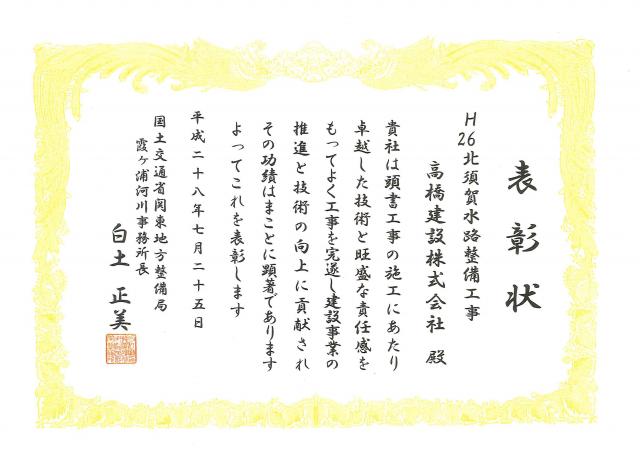 表彰状
H26北須賀水路整備工事
高橋建設株式会社 殿
貴社は頭書工事の施工にあたり
卓越した技術と旺盛な責任感を
もってよく工事を完遂し建設事業の
推進と技術の向上に貢献され
その功績はまことに顕著であります
よってこれを表彰します
平成二十八年七月二十五日
国土交通省関東地方整備局
霞ヶ浦河川事務所長
白土 正美